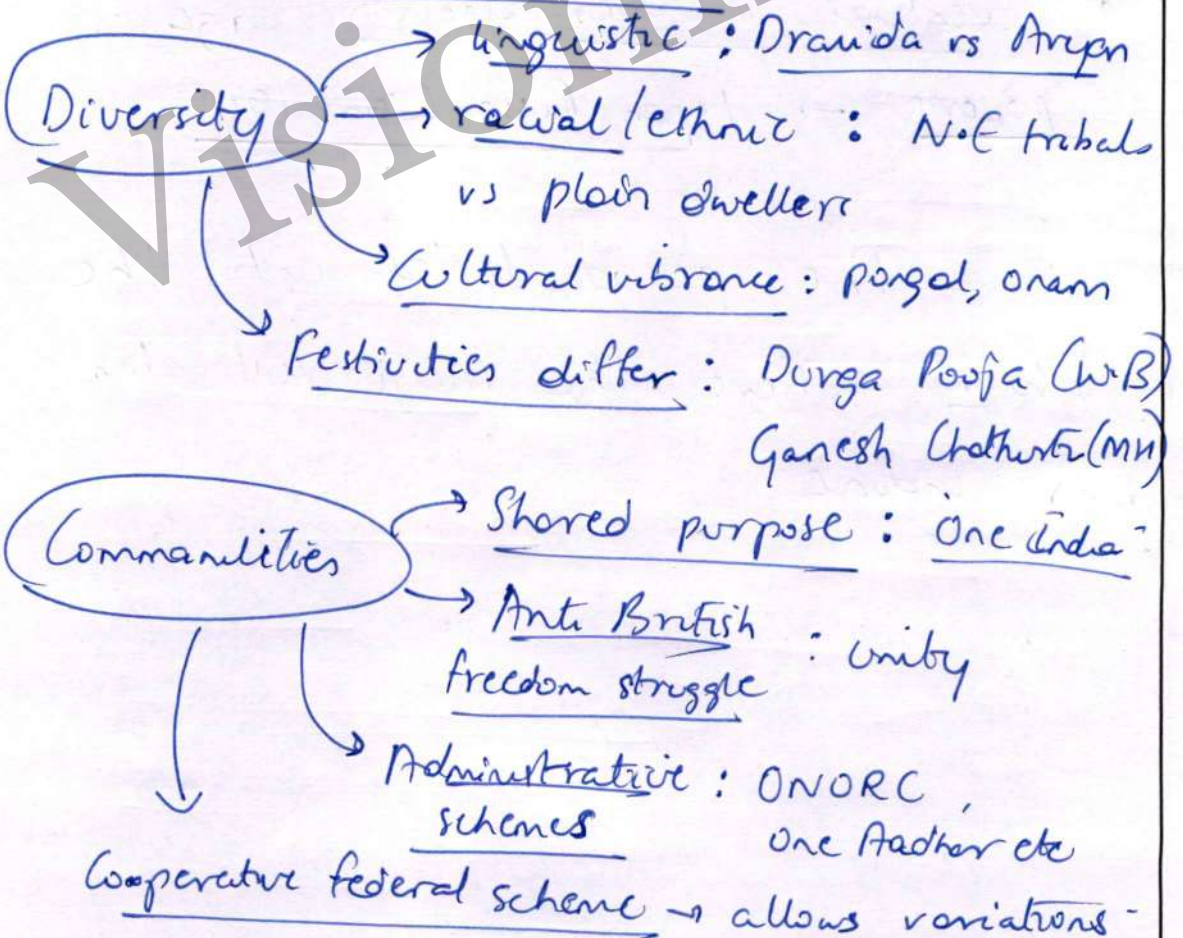 Diversity
→ linguistic : Dravida vs Aryan
→ racial/ethnic : N.E tribals
vs plain dwellers
Cultural vibrance : pongal, onam
Festivities differ : Durga Pooja (W.B)
Ganesh Chathurti (MH)
Commanilities
→ Shared purpose : One India
→ Anti British
freedom struggle : unity
Administrative
schemes : ONORC,
One Aadhar etc
Cooperative federal scheme → allows variations
Vision